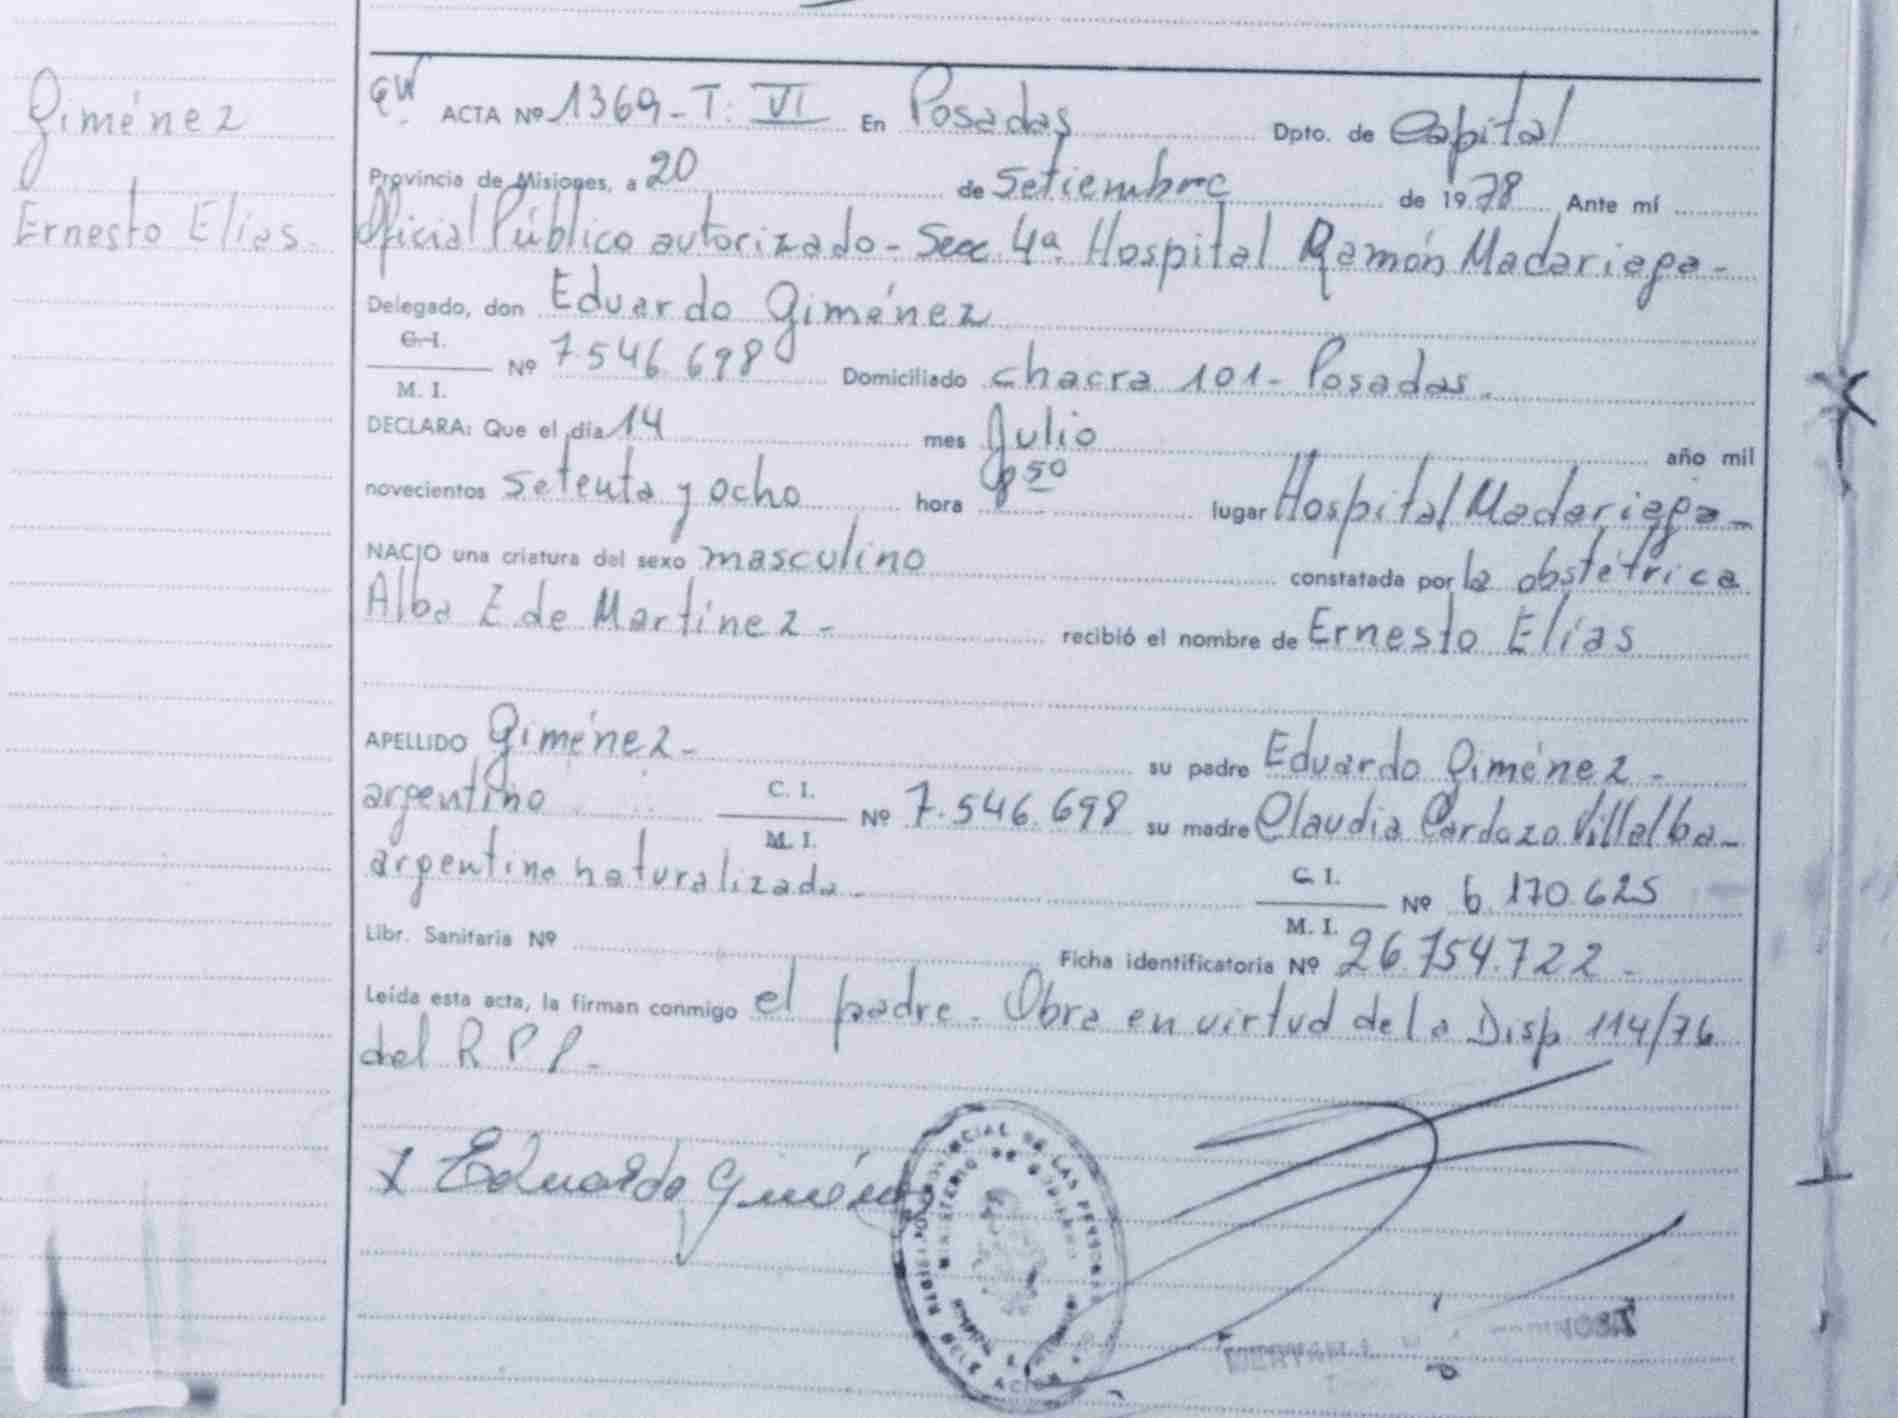 Giménez
Ernesto Elias.
ACTA Nº 1369 - T: VI En Posadas Dpto. de Capital
Provincia de Misiones, a 20 de Setiembre de 1978 Ante mí
Oficial Público autorizado - Secc. 4ª. Hospital Ramón Madariaga -
Delegado, don Eduardo Giménez
C. I.
M. I. Nº 7.546.698 Domiciliado chacra 101 - Posadas.
DECLARA: Que el día 14 mes Julio año mil
novecientos setenta y ocho hora 8 50 lugar Hospital Madariaga -
NACIO una criatura del sexo masculino constatada por la obstétrica
Alba E de Martínez - recibió el nombre de Ernesto Elías
APELLIDO Giménez - su padre Eduardo Giménez -
argentino C. I. M. I. Nº 7.546.698 su madre Claudia Cardozo Villalba -
argentina naturalizada - C. I. M. I. Nº 6.170.625
Libr. Sanitaria Nº Ficha identificatoria Nº 26.754.722 -
Leída esta acta, la firman conmigo el padre - Obra en virtud de la Disp 114/76
del R P P -
x Eduardo Giménez
PROVINCIAL DE LAS PERSONAS
MINISTERIO DE GOBIERNO